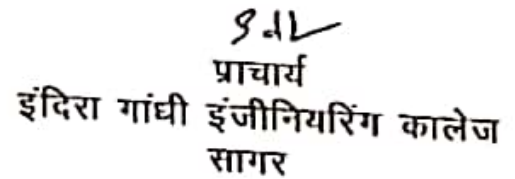 प्राचार्य
इंदिरा गांधी इंजीनियरिंग कालेज
सागर